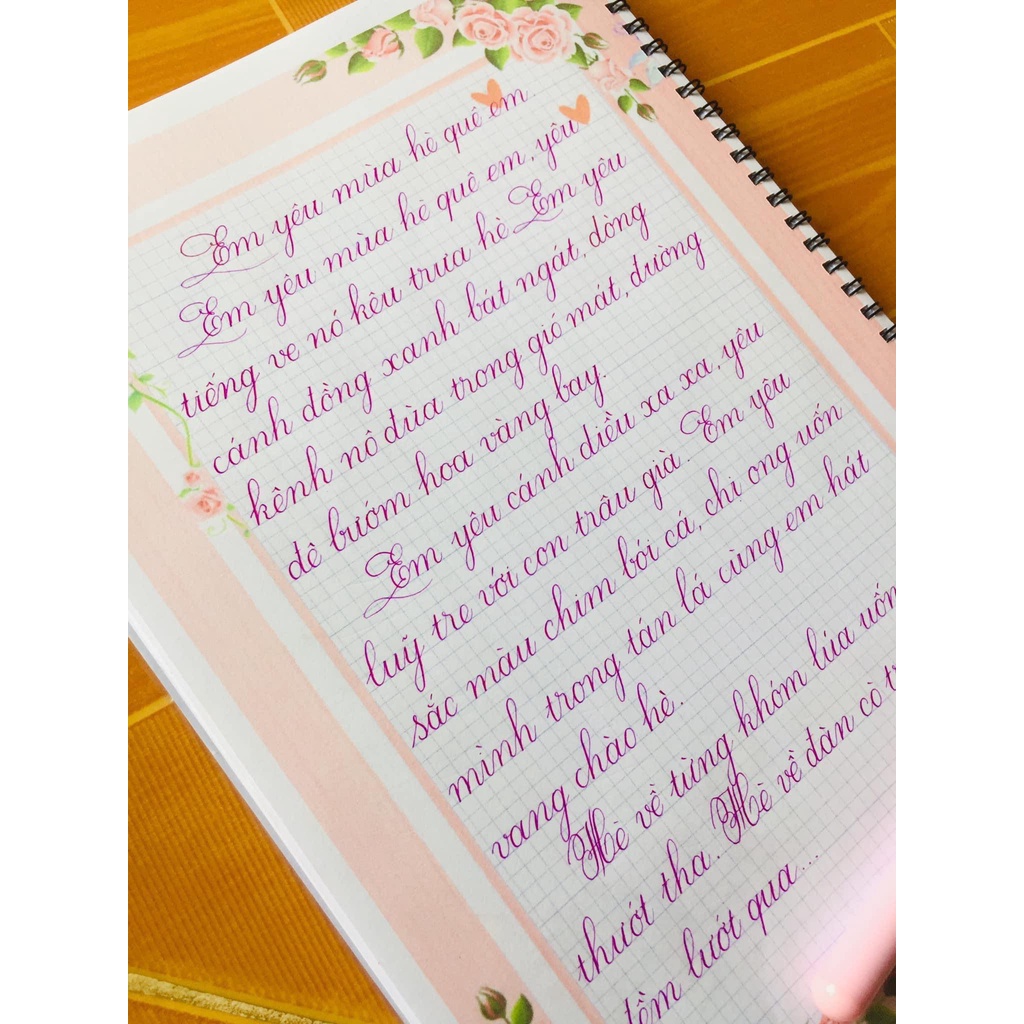 Em yêu mùa hè quê em.
Em yêu mùa hè quê em, yêu
tiếng ve nó kêu trưa hè Em yêu
cánh đồng xanh bát ngát, dòng
kênh nô đùa trong gió mát, đường
đê bướm hoa vàng bay.
Em yêu cánh diều xa xa, yêu
luỹ tre với con trâu già. Em yêu
sắc màu chim bói cá, chi ong uốn
mình trong tán lá cùng em hát
vang chào hè.
Hè về từng khóm lúa uốn
thướt tha. Hè về đàn cò
lướt qua...